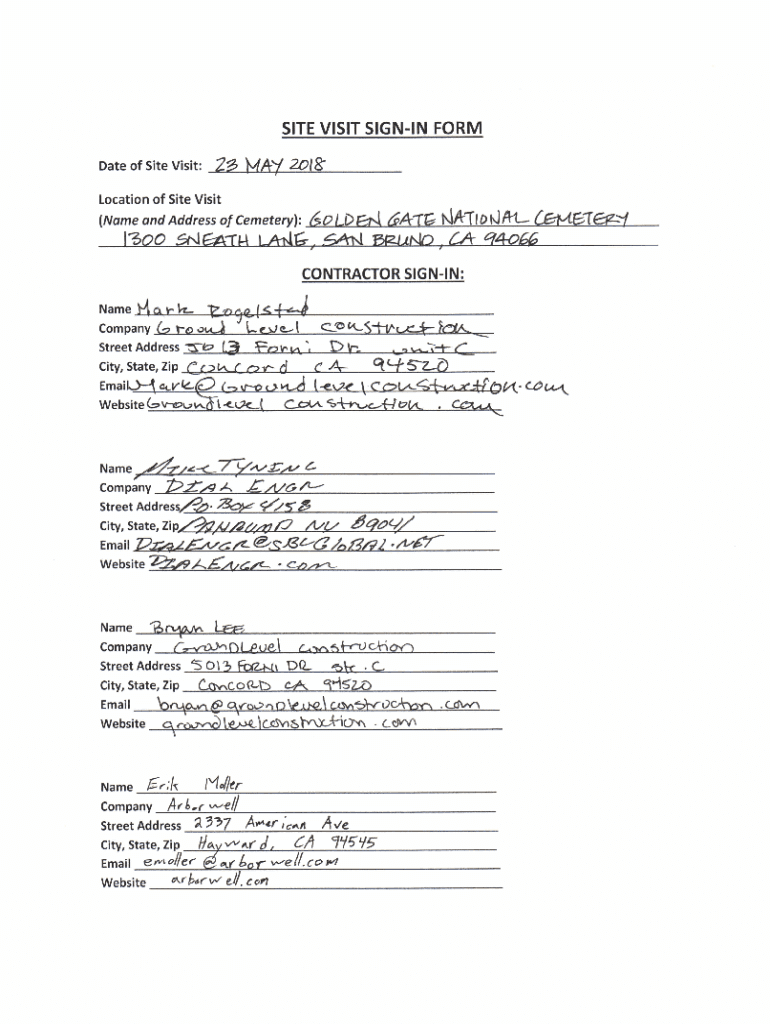 SITE VISIT SIGN-IN FORM
Date of Site Visit: 23 MAY 2018
Location of Site Visit
(Name and Address of Cemetery): GOLDEN GATE NATIONAL CEMETERY
1300 SNEATH LANE, SAN BRUNO, CA 94066
CONTRACTOR SIGN-IN:
Name Mark Rogelstad
Company Ground Level construction
Street Address 5013 Forni Dr. unit C
City, State, Zip Concord CA 94520
Email Mark@Groundlevelconstruction.com
Website Groundlevel construction.com
Name MIKE TYNING
Company DIAL ENGR
Street Address P.O. BOX 4158
City, State, Zip PAHRUMP NV 89041
Email DIALENGR@SBCGLOBAL.NET
Website DIALENGR.com
Name Bryan LEE
Company GrounDLevel construction
Street Address 5013 FORNI DR ste. C
City, State, Zip CONCORD CA 94520
Email bryan@grounDlevelconstruction.com
Website groundlevelconstruction.com
Name Erik Moller
Company Arborwell
Street Address 2337 American Ave
City, State, Zip Hayward, CA 94545
Email emoller@arborwell.com
Website arborwell.com